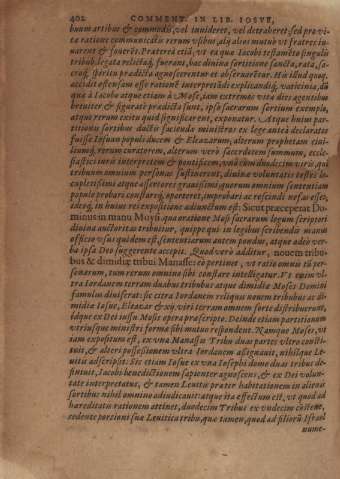 402 COMMENT. IN LIB. IOSVE,
buum artibus & commodis, vel inuideret, vel detraheret: sed pro vi-
tæ ratione communicatis rerum vsibus, alij alios mutuò vt fratres iu-
uarent & fouerēt. Præterea etiā, vt ea quæ Iacobi testamēto singulis
tribub. legata relictaq́; fuerant, hac diuina sortitione sancta, rata, sa-
craq́; spiritu prædicta agnoscerentur et obseruarētur. Hoc illud quoq.
accidit ostensam esse rationē interpretādi explicandiq́; vaticinia, dū
quæ à Iacobo atque etiam à Mose, iam extremum vitæ dies agentibus
breuiter & figuratè prædicta sunt, ipso sacrarum sortium exemplo,
atque rerum exitu quid significarent, exponatur. Atque huius par-
titionis sortibus ductis faciendæ ministros ex lege anteà declaratos
fuisse Iosuam populi ducem & Eleazarum, alterum prophetam ciui-
liumq́; rerum curatorem, alterum verò sacerdotem summum, eccle-
siastici iuris interpretem & pontificem, vnà cum duodecim viris, qui
tribuum omnium personas sustinerent, diuinæ voluntatis testes lo-
cupletissimos atque assertores grauissimos, quorum omnium sententiam
populo probari constarēq́; oporteret, improbari ac rescindi nefas esset,
idcoq́; in huius rei expositione adiunctum est: Sicut præceperat Do-
minus in manu Moysi. qua oratione Mosi sacrarum legum scriptori
diuina auctoritas tribuitur, quippe qui in legibus scribendis manus
officio vsus quidem est, sententiarum autem pondus, atque adeò ver-
ba ipsa Deo suggerente accepit. Quod verò additur, nouem tribu-
bus & dimidiæ tribui Manasse: eò pertinet, vt ratio omnis tū per-
sonarum, tum rerum omnino sibi constare intelligatur. Vt enim vl-
tra Iordanem terram duabus tribubus atque dimidiæ Moses Domini
famulus diuiserat: sic citra Iordanem reliquis nouem tribubus ac di-
midiæ Iosue, Eleazar & xij. viri terram omnem sorte distribuerunt,
idque ex Dei iussu Mosis opera præscripto. Deinde etiam partitionum
vtriusque ministri forma sibi mutuò respondent. Namque Moses, vt
iam expositum est, ex vna Manassis Tribu duas partes vltrò consti-
tuit, & alteri possessionem vltra Iordanem assignauit, nihilq́ue Le-
uitis adscripsit. Sic etiam Iosue ex vna Iosephi domo duas tribus de-
finiuit, Iacobi benedictionem sapienter agnoscens, & ex Dei volun-
tate interpretatus, & tamen Leuitis præter habitationem in alienis
sortibus nihil omnino adiudicauit: atque ita effectum est, vt quod ad
hæreditatis rationem attinet, duodecim Tribus ex vndecim cōstent,
cedente portioni suæ Leuitica tribu, quæ tamen, quod ad filiorū Israel
nume-